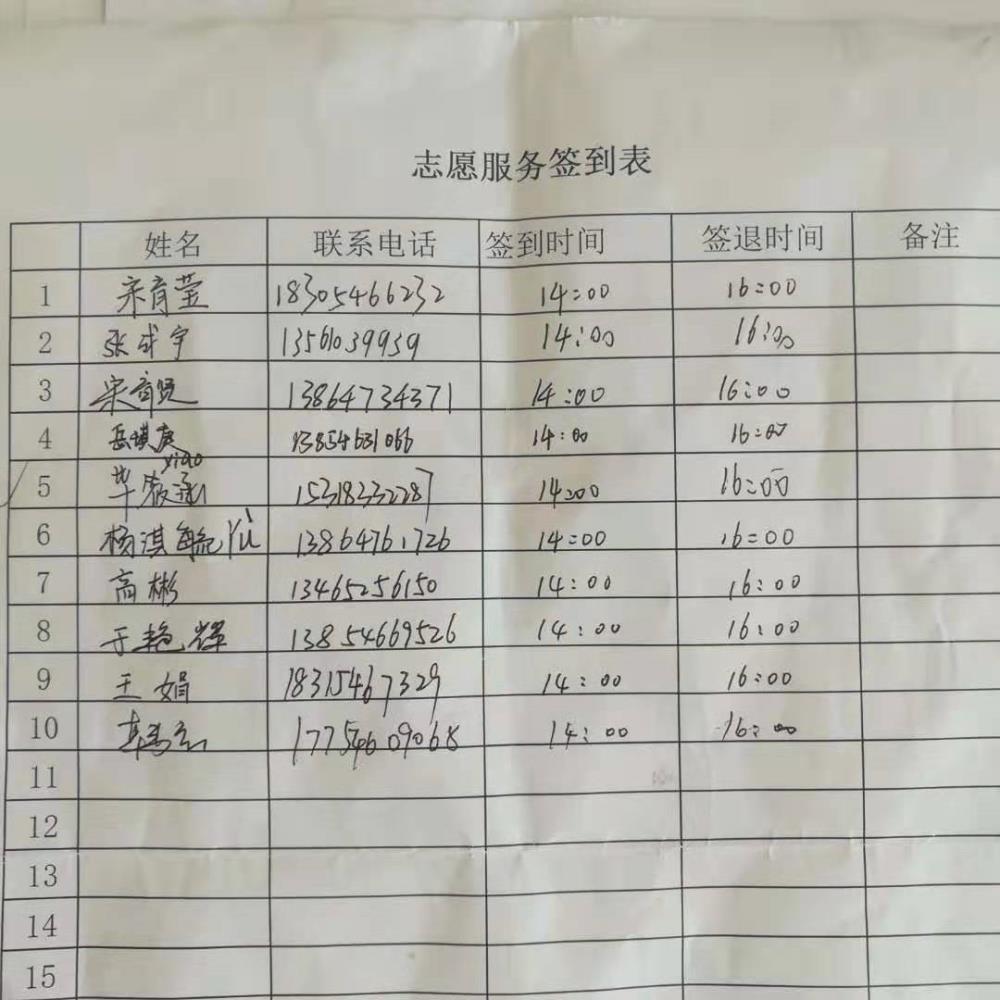 志愿服务签到表
姓名 联系电话 签到时间 签退时间 备注
1 宋育莹 18305466232 14:00 16:00
2 张成宇 13561039939 14:00 16:00
3 宋育贤 13864734371 14:00 16:00
4 岳琪 13854631066 14:00 16:00
5 毕 xiao 15318332287 14:00 16:00
6 杨淇毓 yù 13864761726 14:00 16:00
7 高彬 13465256150 14:00 16:00
8 于艳辉 13854669526 14:00 16:00
9 王娟 18315467329 14:00 16:00
10 17754609068 14:00 16:00
11
12
13
14
15